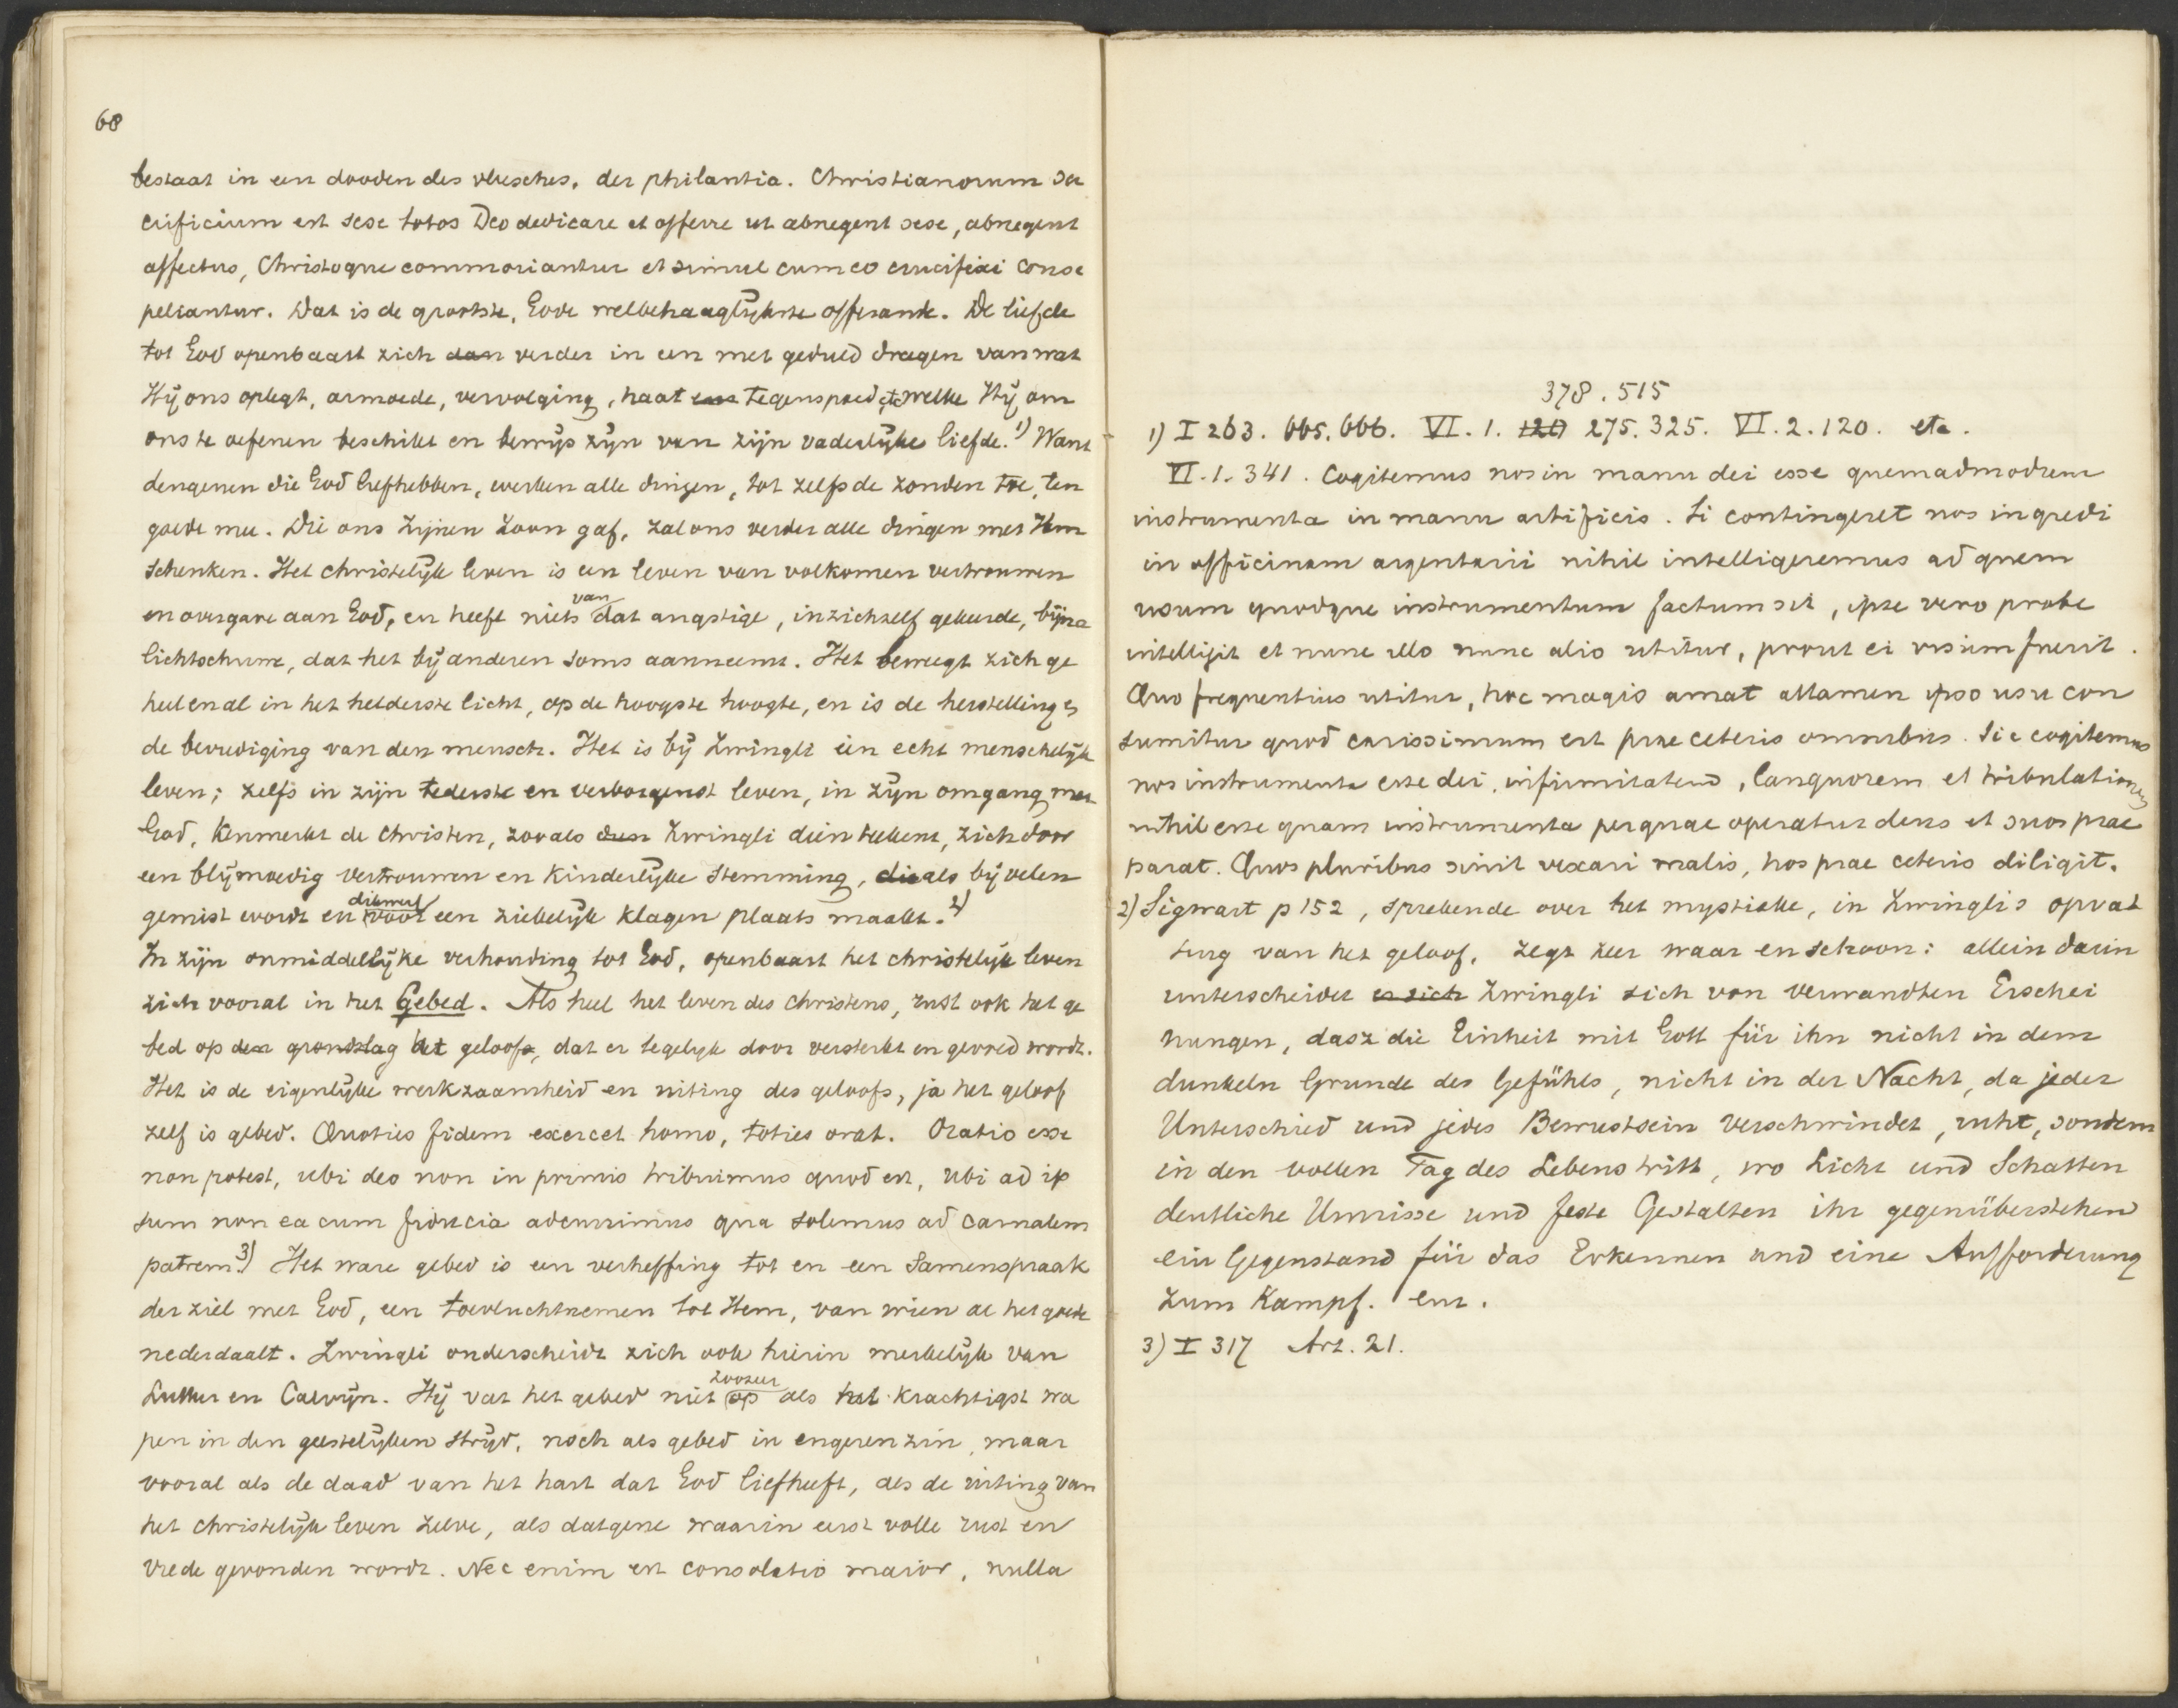 68
bestaat in een dooden des vleesches, der philantia. Christianorum sa
crificium est sese totos Deo dedicare et offerre ut abnegent sese, abnegent
affectus, Christoque commoriantur et simul cum eo crucifixi conse
peliantur. Dat is de grootste, Gode welbehaaglijkste offerande. De liefde
tot God openbaart zich dan verder in een met geduld dragen van wat
Hij ons oplegt, armoede, vervolging, haat en tegenspoed etc welke Hij om
ons te oefenen beschikt en bewijs zijn van zijn vaderlijke liefde. 1) Want
dengenen die God liefhebben, werken alle dingen, tot zelfs de zonden toe, ten
goede mee. Die ons Zijnen Zoon gaf, zal ons verder alle dingen met Hem
schenken. Het christelijk leven is een leven van volkomen vertrouwen
en overgave aan God, en heeft niets van dat angstige, in zichzelf gekeerde, bijna
lichtschuwe, dat het bij anderen soms aanneemt. Het beweegt zich ge
heel en al in het helderste licht, op de hoogste hoogte, en is de herstelling en
de bevrediging van den mensch. Het is bij Zwingli een echt menschelijk
leven; zelfs in zijn tederste en verborgenst leven, in zijn omgang met
God, kenmerkt de Christen, zooals dien Zwingli dien teekent, zich door
een blijmoedig vertrouwen en kinderlijke stemming, die als bij velen
gemist wordt en dikwerf voor een ziekelijk klagen plaats maakt. 2)
In zijn onmiddellijke verhouding tot God, openbaart het christelijk leven
zich vooral in het Gebed. Als heel het leven des christens, rust ook het ge
bed op den grondslag het geloofs, dat er tegelijk door versterkt en gevoed wordt.
Het is de eigenlijke werkzaamheid en uiting des geloofs, ja het geloof
zelf is gebed. Quoties fidem exercet homo, toties orat. Oratio esse
non potest, ubi deo non in primis tribuimus quod est, ubi ad ip
sum non ea cum fiducia adcurrimus qua solemus ad carnalem
patrem. 3) Het ware gebed is een verheffing tot en een samenspraak
der ziel met God, een toevluchtnemen tot Hem, van wien al het goede
nederdaalt. Zwingli onderscheidt zich ook hierin merkelijk van
Luther en Calvijn. Hij vat het gebed niet zoozeer op als het krachtigst wa
pen in den geestelijken strijd, noch als gebed in engeren zin, maar
vooral als de daad van het hart dat God liefheeft, als de uiting van
het christelijk leven zelve, als datgene waarin eerst volle rust en
vrede gevonden wordt. Nec enim est consolatio maior, nulla
378. 515
1) I 263. 665. 666. VI. 1. 120 275. 325. VI. 2. 120. etc.
VI. 1. 341. Cogitemus nos in manu dei esse quemadmodum
instrumenta in manu artificis. Si contingeret nos ingredi
in officinam argentarii nihil intelligeremus ad quem
usum quodque instrumentum factum sit, ipse vero probe
intelligit et nunc illo nunc alio utitur, prout ei visum fuerit.
Quo frequentius utitur, hoc magis amat attamen ipso usu con
sumitur quod carissimum est prae ceteris omnibus. Sic cogitemus
nos instrumenta esse dei, infirmitatem, languorem et tribulationem
nihil esse quam instrumenta per quae operatur deus et suos prae
parat. Quos pluribus sinit vexari malis, hos prae ceteris diligit.
2) Sigwart p 152, sprekende over het mystieke, in Zwingli's opvat
ting van het geloof, zegt zeer waar en schoon: allein darin
unterscheidet er sich Zwingli sich von verwandten Erschei
nungen, dasz die Einheit mit Gott für ihn nicht in dem
dunkeln Grunde des Gefühls, nicht in der Nacht, da jeder
Unterschied und jedes Bewustsein verschwindet, ruht, sondern
in den vollen Tag des Lebens tritt, wo Licht und Schatten
deutliche Umrisse und feste Gestalten ihr gegenüberstehen
ein Gegenstand für das Erkennen und eine Aufforderung
zum Kampf. enz.
3) I 317 Art. 21.